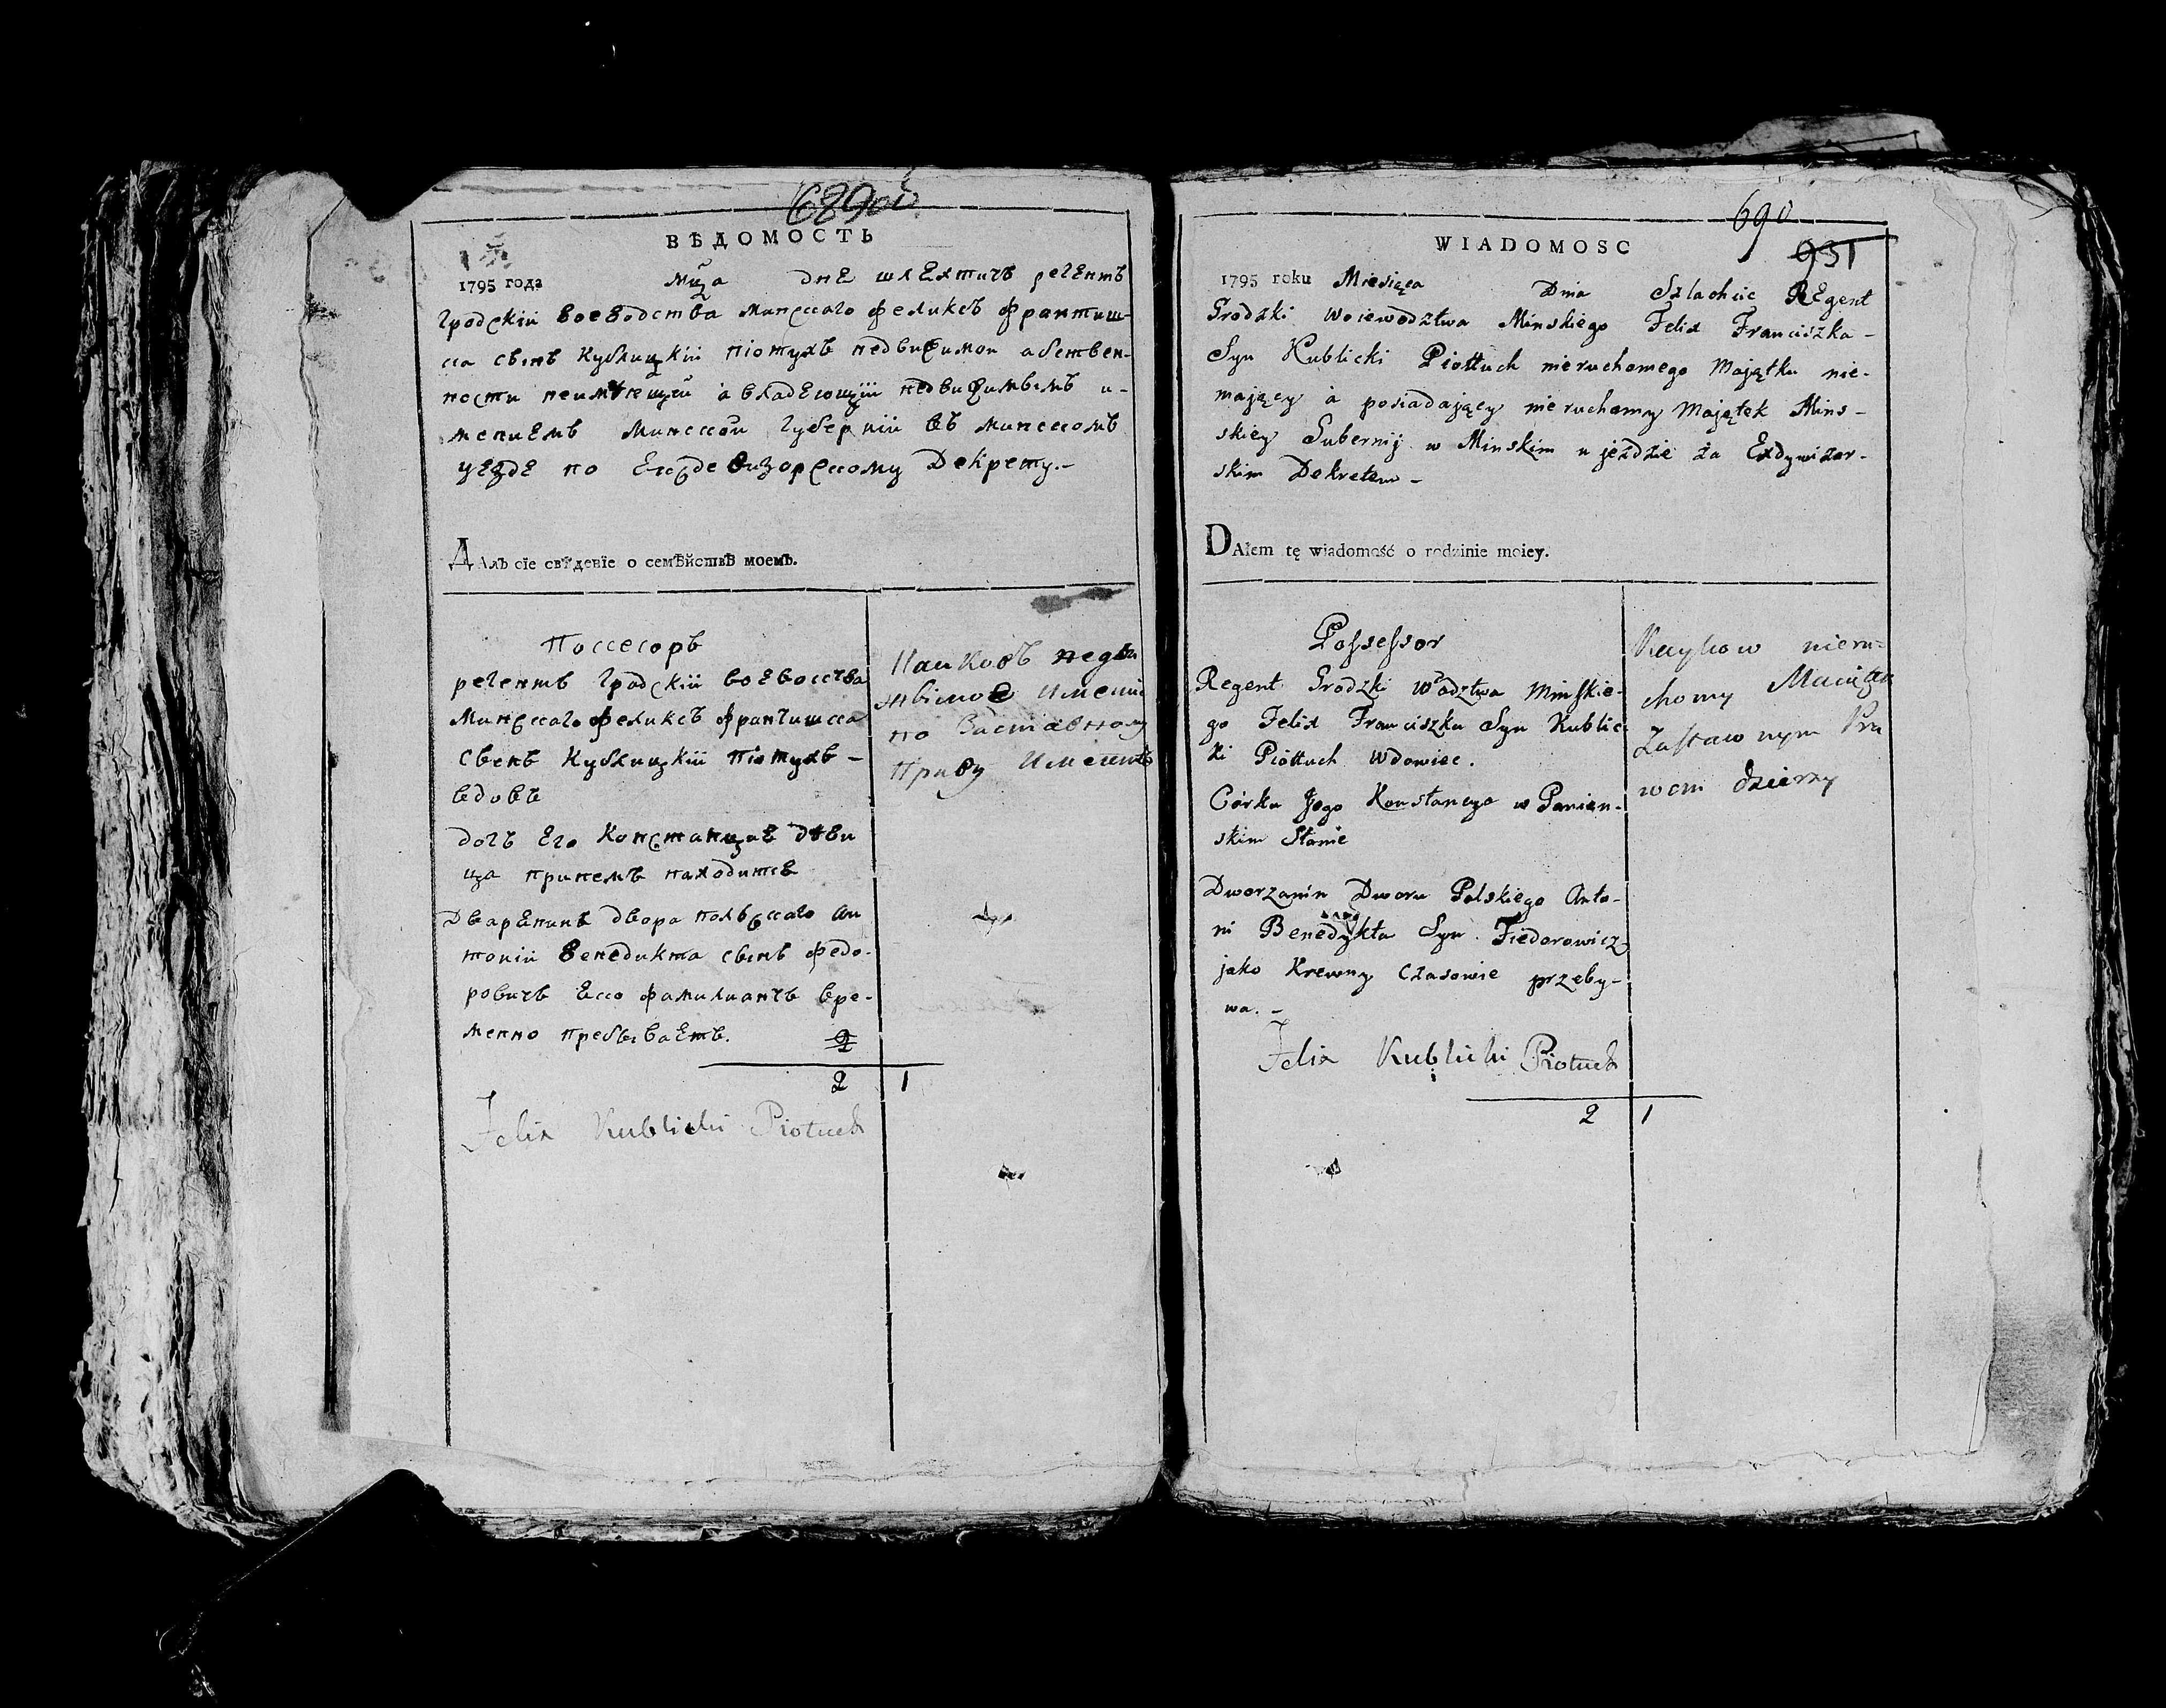 689 об
ВѢДОМОСТЬ
1795 года мца дне шлехтичъ регентъ
гродскiи воеводства минсcаго феликсъ францишъ-
сcа сынъ Кублицкiи пiотухъ недвижимои абствен-
ности неимѣющей а владеющiи недвижимымъ и-
мениемъ минсcой губернiи въ минсcомъ
уезде по Ексдевизорсcому Декрету.-
Далъ сіе свѣденіе о семѣйствѣ моемъ.
Поссесоръ
регентъ гродскiи воевоства
минсcаго феликсъ францишсcа
сынъ Кублицкiи пiотухъ -
вдовъ
дочъ его Констанцae дѣви
ца принемъ находитсе
Дваренинъ двора полсcаго Ан
тонiи Венедикта сынъ федо-
ровичъ ево фамилиантъ вре-
менно пребываетъ.
2 1
Felix Kublicki Piotuch
недви
жымое имение
по Заставному
Праву
690
931
WIADOMOSC
1795 roku Miesiąca Dnia Szlachcic REgent
Grodzki Woiewodztwa Minskiego Felix Franciszka -
Syn Kublicki Piottuch nieruchomego Majątku nie-
mający a posiadający nieruchomy Majątek Mins-
skiey Gubernij w Minskim ujezdzie za Exdywizor-
skim Dekretem -
DAłem tę wiadomość o rodzinie moiey.
Possessor
Regent Grodzki Wodztwa Minskie-
go Felix Franciszka Syn Kublic
ki Piottuch Wdowiec.
Córka Jego Konstancya w Panien-
skim Stanie
Dworzanin Dworu Polskiego Anto-
ni Benedykta Syn Fiedorowicz
jako Krewny Czasowie przeby-
wa. -
Felix Kublicki Piotuch
2 1
nieru-
chomy Maiątek
Zastawnym Pra
wem dzierzy